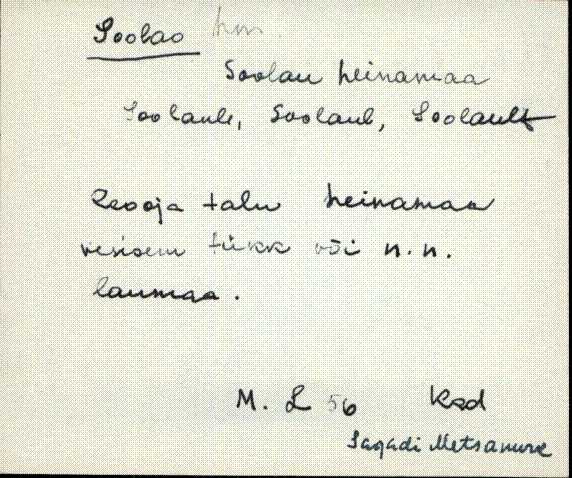 Soolao hm
Soolau heinamaa
Soolaule, Soolaul, Soolault
Resoja talu heinamaa
vesisem tükk või n.n.
laumaa.
M. L 56 Ksd
Sagadi Metsanurk